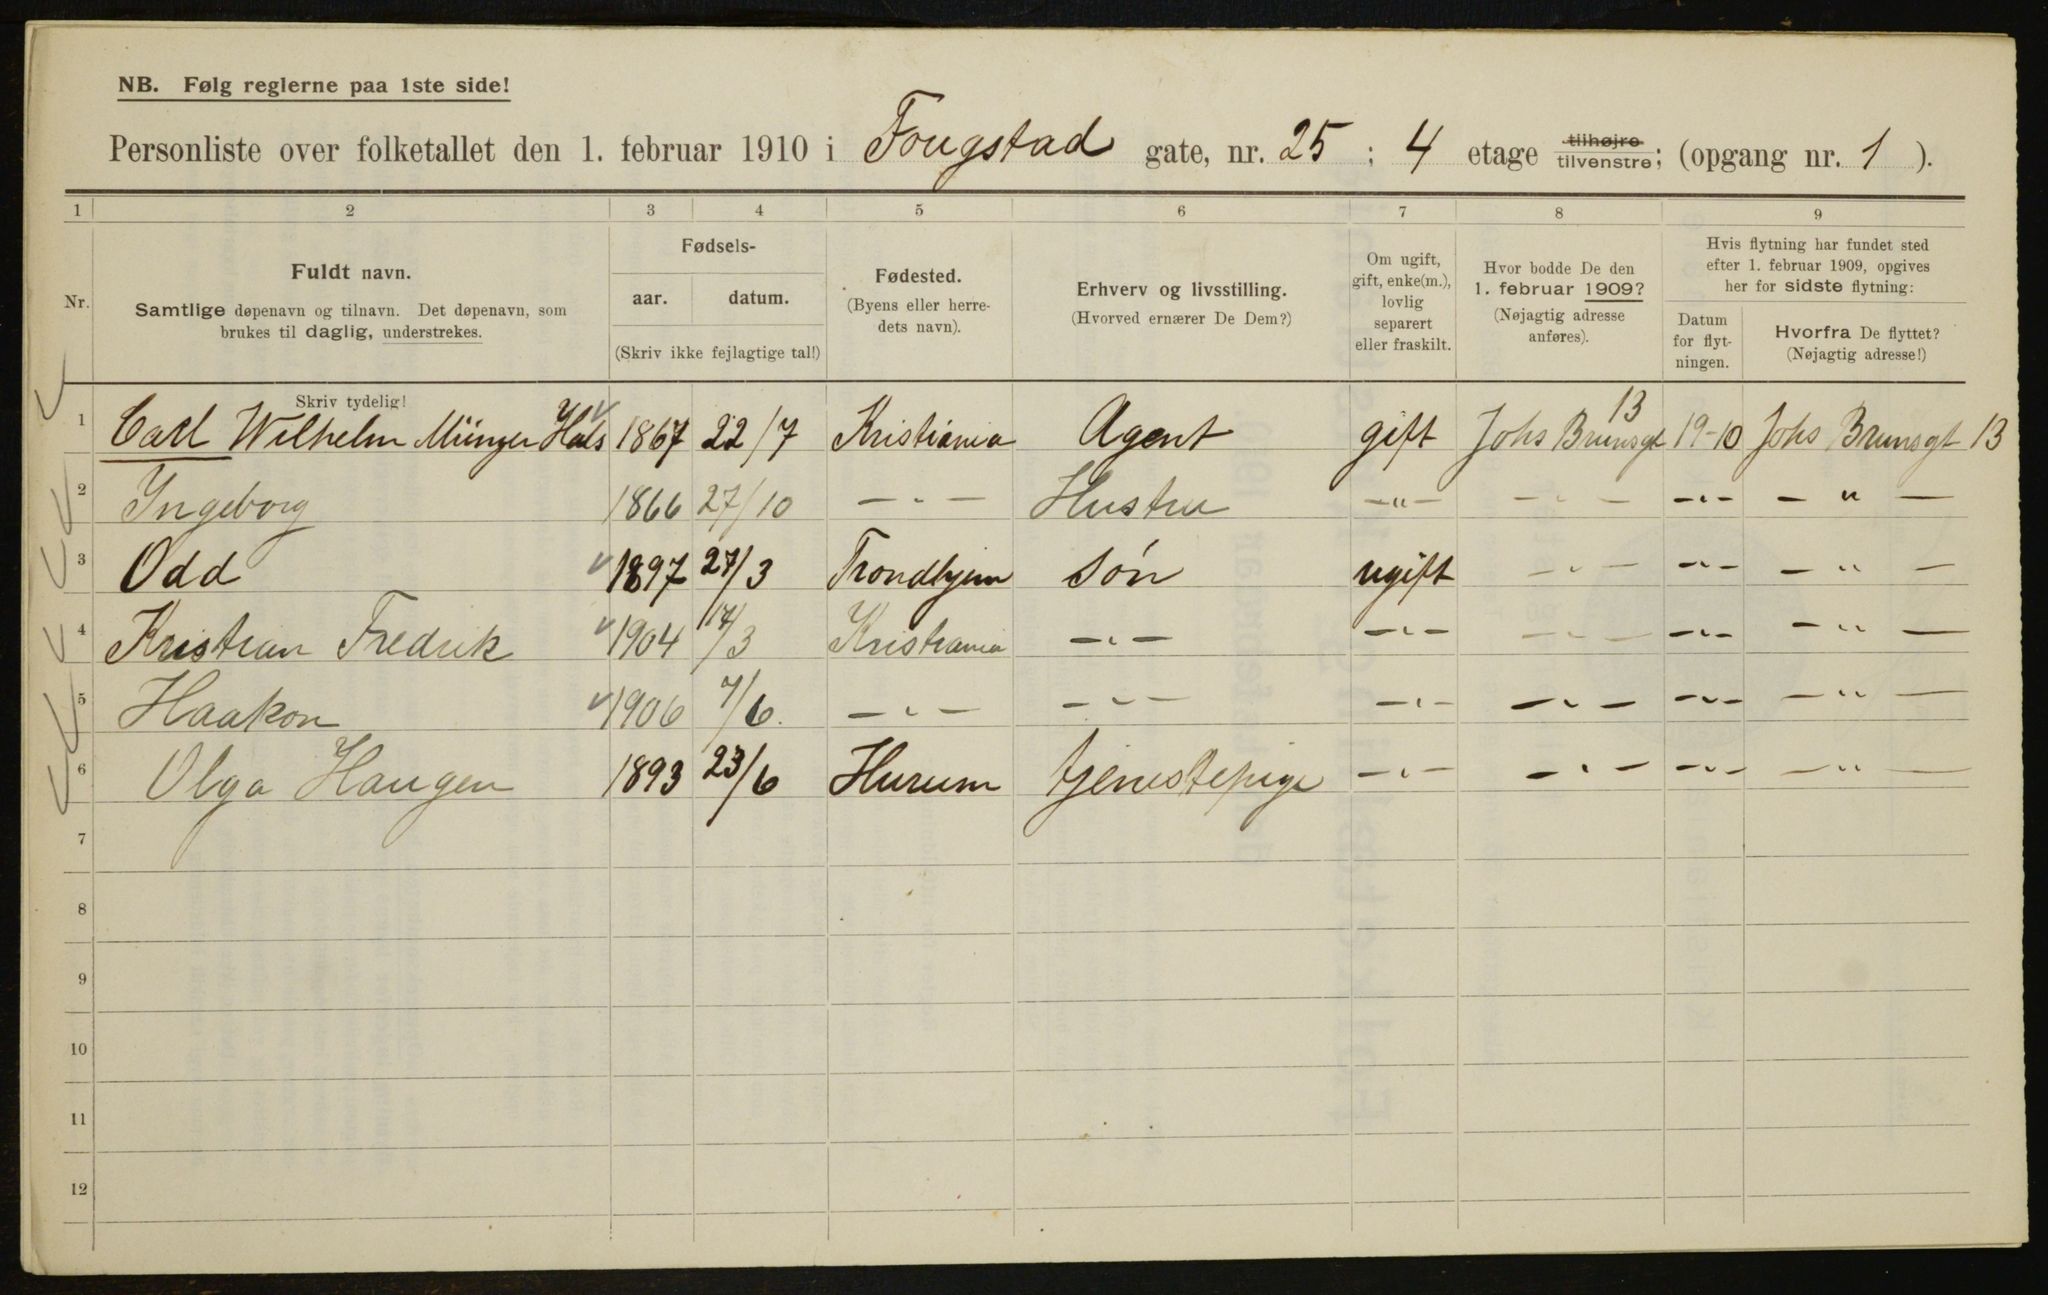 NB. Følg reglerne paa 1ste side!
Personliste over folketallet den 1. februar 1910 i Fougstad gate, nr. 25 ; 4 etage tilhøjre tilvenstre; (opgang nr. 1 ).
1 2 3 4 5 6 7 8 9
Nr.
Fuldt navn.
Samtlige døpenavn og tilnavn. Det døpenavn, som
brukes til daglig, understrekes.
Fødsels-
aar. datum.
(Skriv ikke fejlagtige tal!)
Fødested.
(Byens eller herre-
dets navn).
Erhverv og livsstilling.
(Hvorved ernærer De Dem?)
Om ugift,
gift, enke(m.),
lovlig
separert
eller fraskilt.
Hvor bodde De den
1. februar 1909?
(Nøjagtig adresse
anføres).
Hvis flytning har fundet sted
efter 1. februar 1909, opgives
her for sidste flytning:
Datum
for flyt-
ningen.
Hvorfra De flyttet?
(Nøjagtig adresse!)
Skriv tydelig!
1 Carl Wilhelm Münger Hals 1867 22/7 Kristiania Agent gift Johs Brunsgt 13 19-10 Johs Brunsgt 13
2 Ingeborg 1866 27/10 —"— Hustru —"— —"— —"— —"—
3 Odd 1897 27/3 Trondhjem søn ugift —"— —"— —"—
4 Kristian Fredrik 1904 17/3 Kristiania —"— —"— —"— —"— —"—
5 Haakon 1906 7/6 —"— —"— —"— —"— —"— —"—
6 Olga Haugen 1893 23/6 Hurum tjenestepige —"— —"— —"— —"—
7
8
9
10
11
12